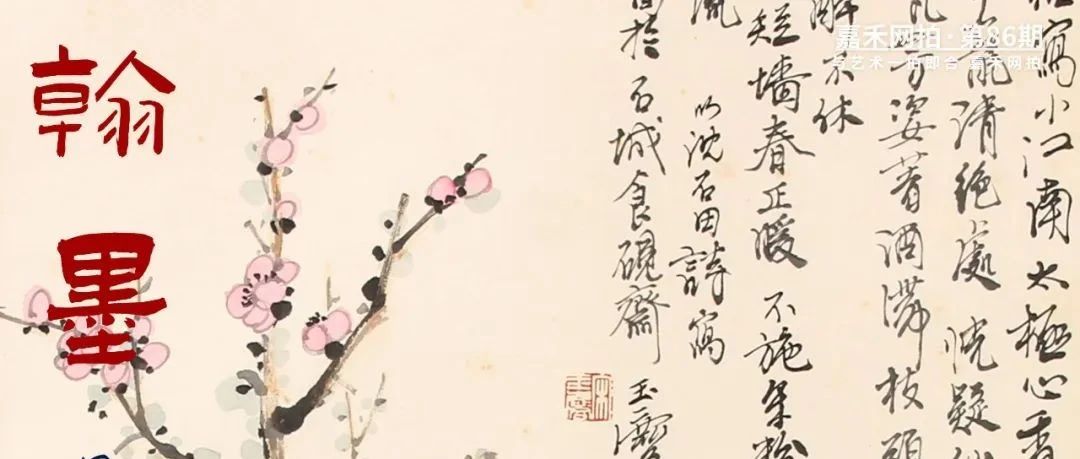 嘉禾网拍·第86期
与艺术一拍即合 嘉禾网拍
翰墨
寫小江南太極心香
風清絕處 恍疑
芳姿著酒滯枝頭
解不休
短墻春正暖 不施朱粉
流
以沈石田詩寫
於石城食硯齋 玉